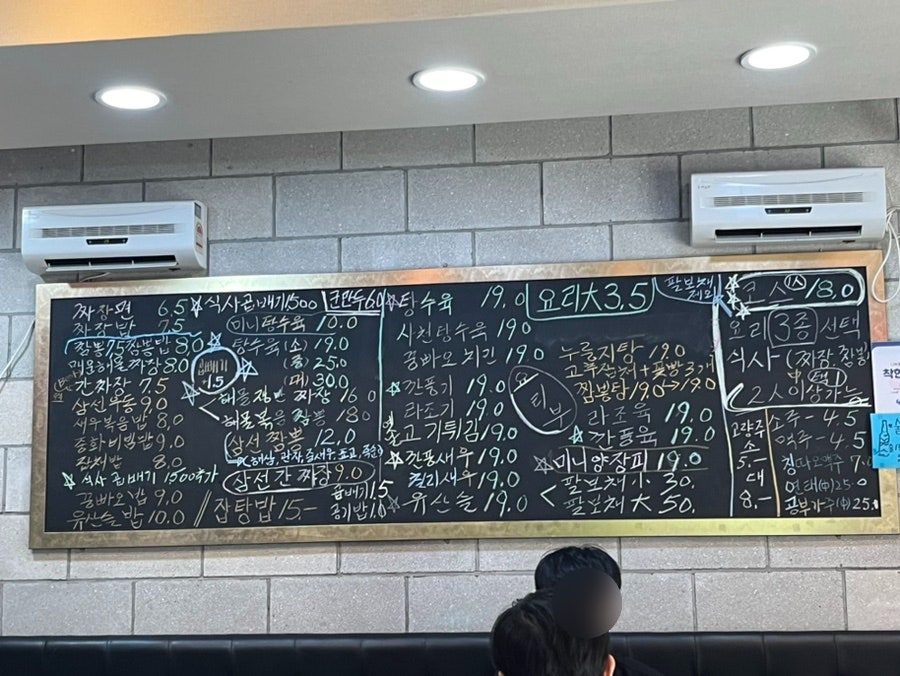 짜장면 6.5
짜장밥 7.5
짬뽕 7.5 짬뽕밥 8.0
해물짜장 8.0
간짜장 7.5
삼선우동 9.0
새우볶음밥 8.0
중화비빔밥 9.0
잡채밥 8.0
식사곱배기 1500추가
꿍빠오밥 9.0
유산슬밥 10.0
식사곱배기 1,500
군만두 6.0
미니탕수육 10.0
탕수육 (소) 19.0
(중) 25.0
(대) 30.0
곱빼기
1.5
짜장 16.0
해물볶음짬뽕 18.0
삼선짬뽕 12.0
삼선간짜장 9.0
곱빼기 1.5
공기밥 1.0
잡탕밥 15-
탕수육 19.0
사천탕수육 19.0
꿍빠오치킨 19.0
깐풍기 19.0
라조기 19.0
고기튀김 19.0
깐풍새우 19.0
칠리새우 19.0
유산슬 19.0
요리大 3.5
팔보채
제외
누룽지탕 19.0
고추잡채+꽃빵 3개
짬뽕탕 19.0 19.0
두부
라조육 19.0
깐풍육 19.0
미니양장피 19.0
팔보채 小 30.
팔보채 大 50.
코스 1人 18.0
요리 3종 선택
식사 (짜장 짬뽕)
택1
2人 이상 가능
고량주
소
5.-
대
8.-
소주 - 4.5
맥주 - 4.5
칭다오맥주 7.0
연태(中) 25.0
공부가주(中) 25.